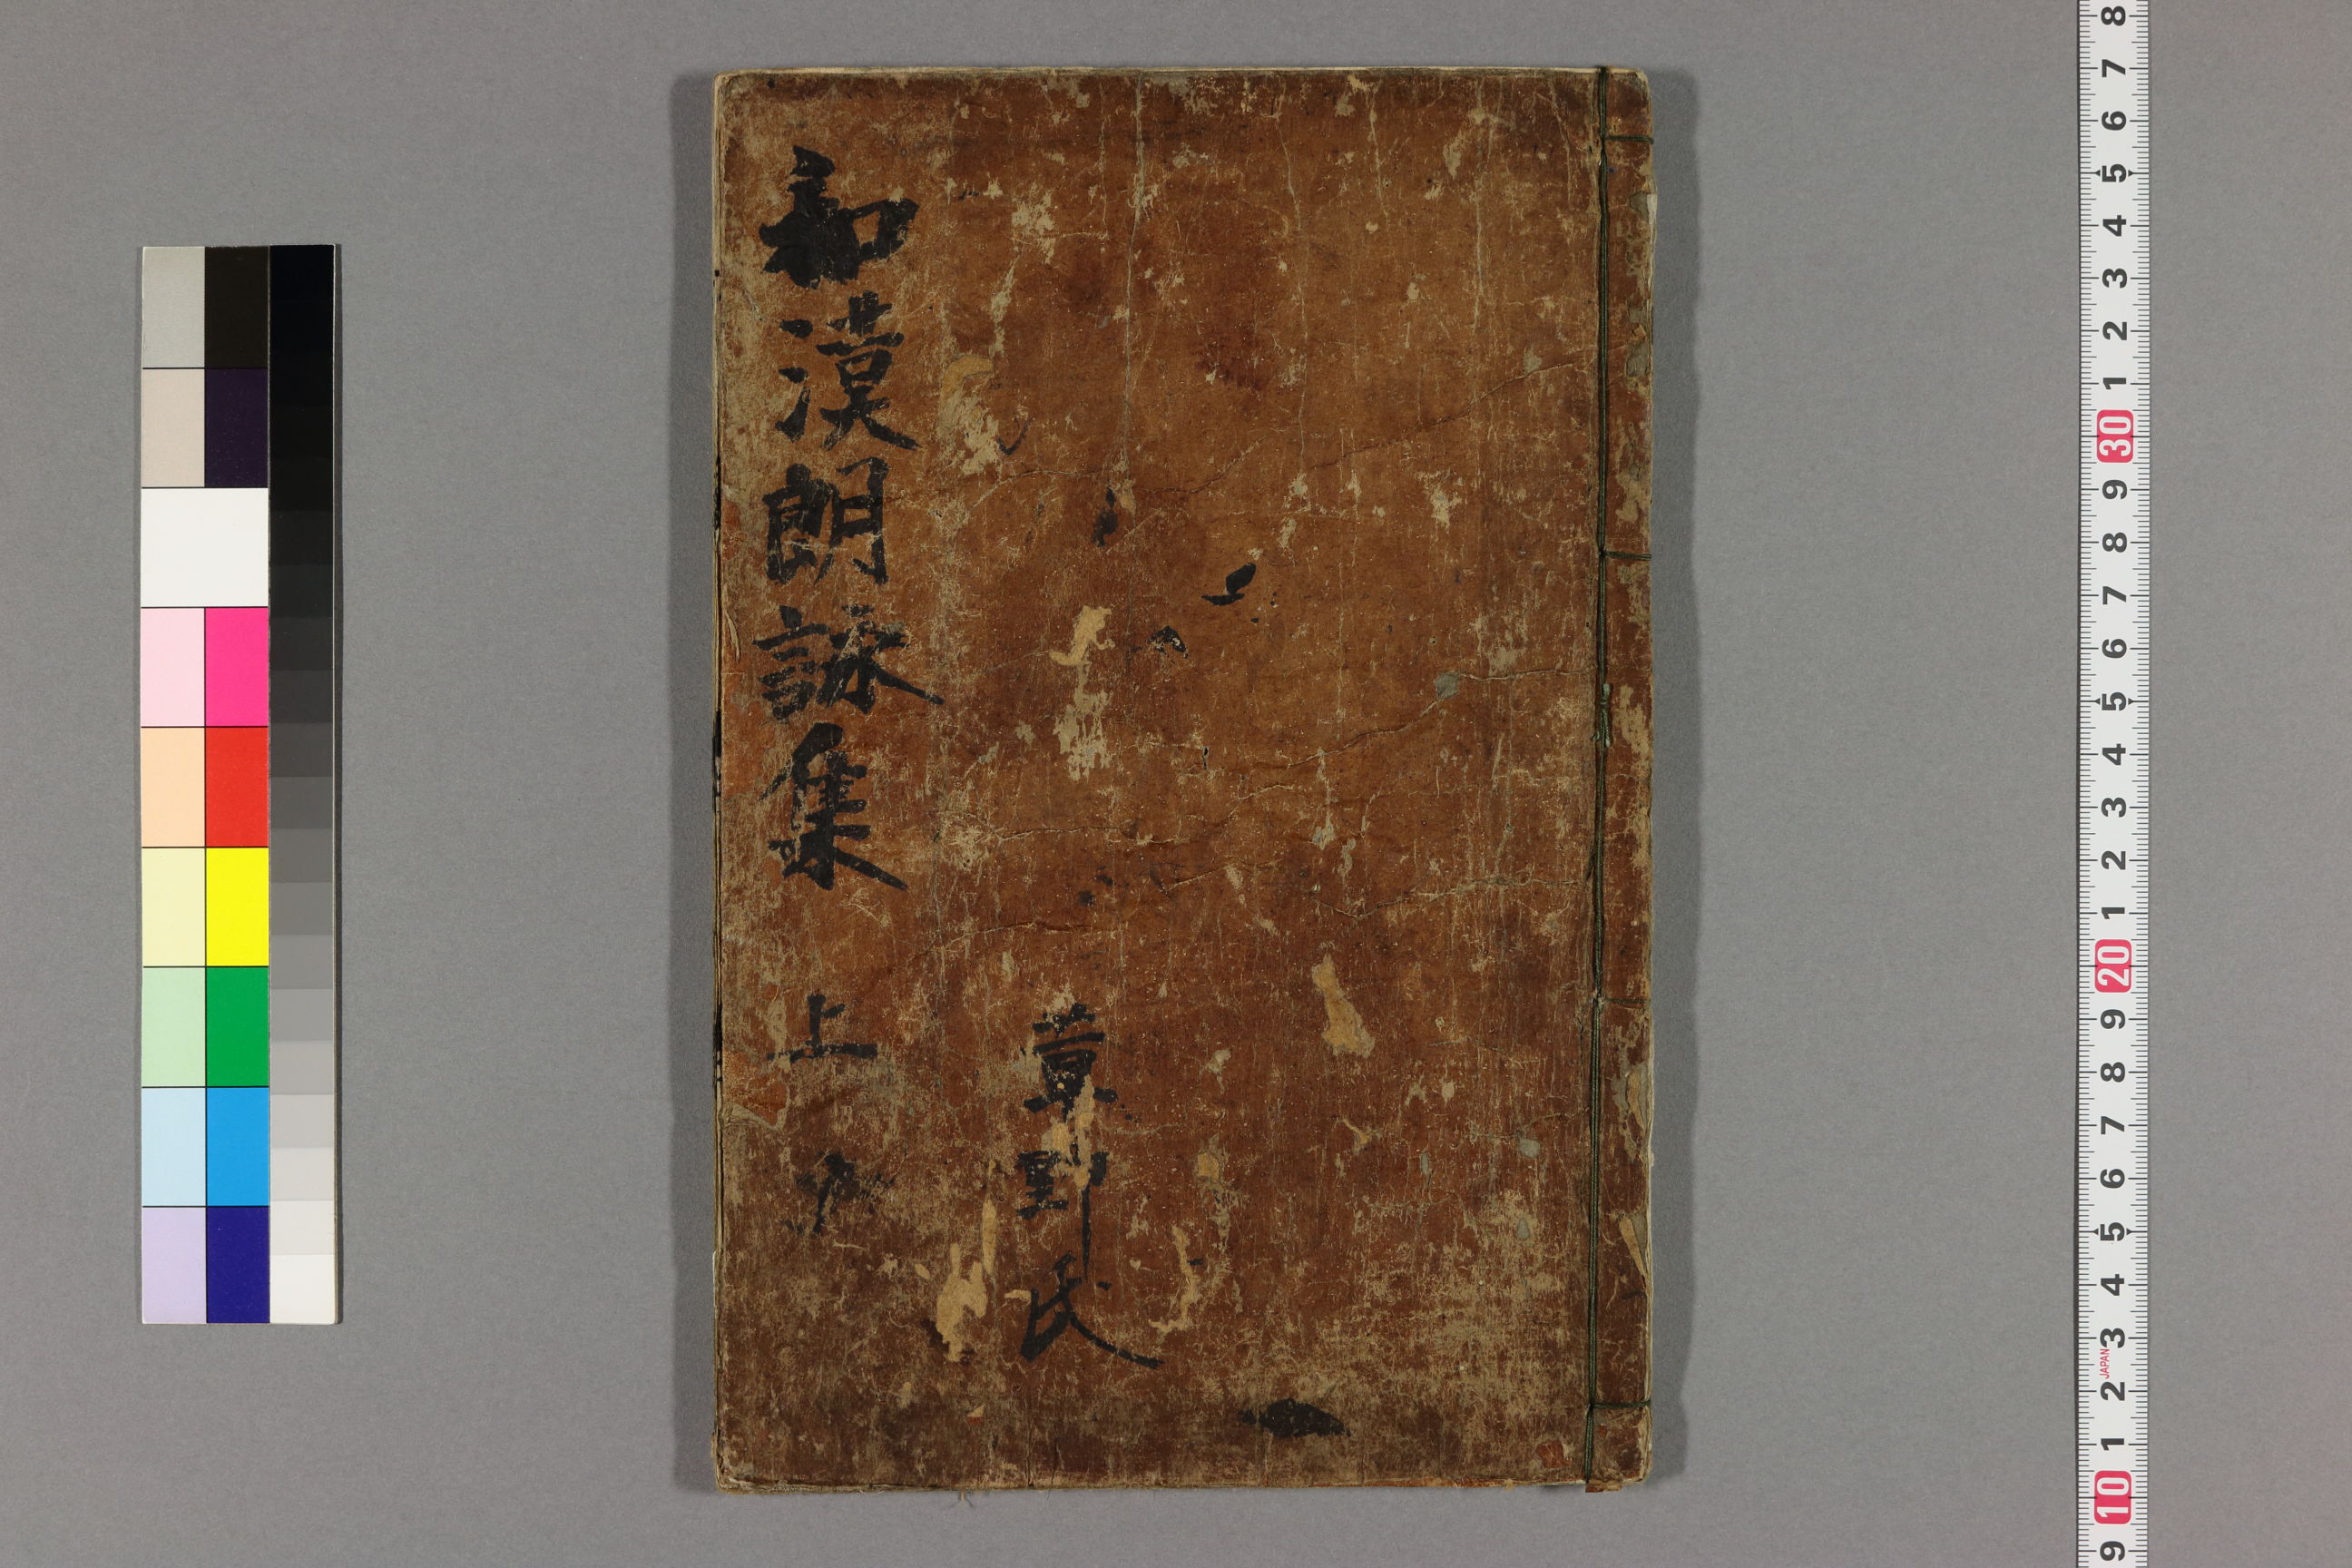 和漢朗詠集 上
草野氏
8
7
6
5
4
3
2
1
30
9
8
7
6
5
4
3
2
1
20
9
8
7
6
5
4
3
JAPAN
2
1
10
9